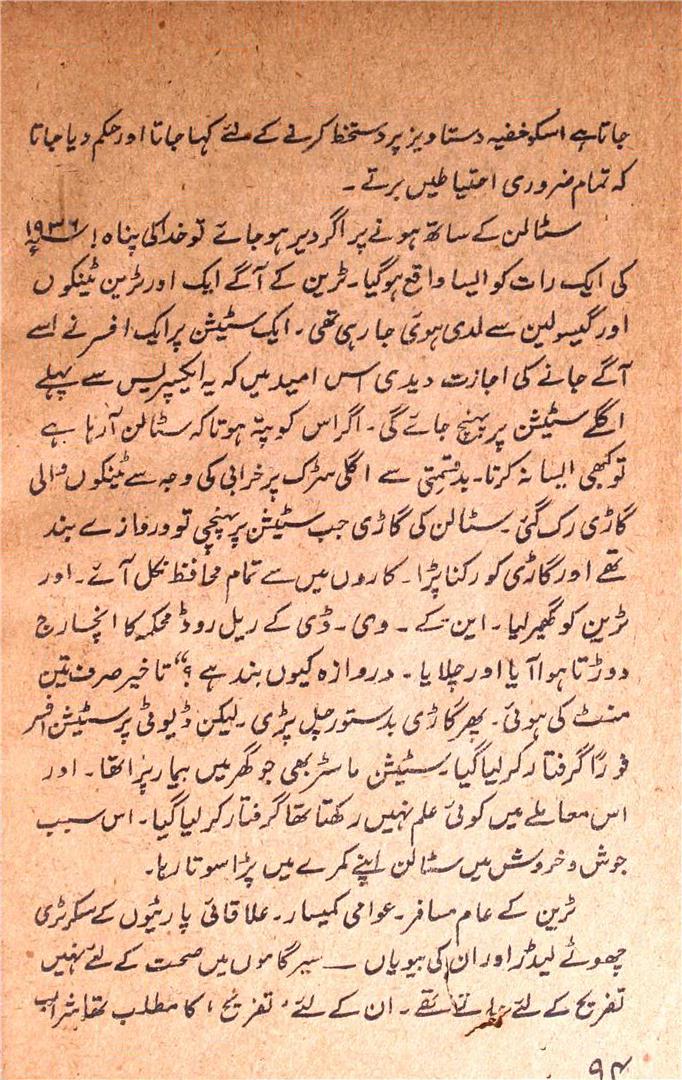 جاتا ہے اسکو خفیہ دستاویز پر دستخط کرنے کے لئے کہا جاتا اور حکم دیا جاتا
کہ تمام ضروری احتیاطیں برتے ۔
سٹالن کے ساتھ ہونے پر اگر دیر ہو جائے تو خدا کی پناہ ! ۱۹۳۶ء
کی ایک رات کو ایسا واقع ہو گیا ۔ ٹرین کے آگے ایک اور ٹرین ٹینکوں
اور گیسولین سے لدی ہوئی جا رہی تھی ۔ ایک سٹیشن پر ایک افسر نے اسے
آگے جانے کی اجازت دیدی اس امید میں کہ یہ ایکسپریس سے پہلے
اگلے سٹیشن پر پہنچ جائے گی ۔ اگر اس کو پتہ ہوتا کہ سٹالن آ رہا ہے
تو کبھی ایسا نہ کرتا ۔ بدقسمتی سے اگلی سڑک پر خرابی کی وجہ سے ٹینکوں والی
گاڑی رک گئی ۔ سٹالن کی گاڑی جب سٹیشن پر پہنچی تو دروازے بند
تھے اور گاڑی کو رکنا پڑا ۔ کاروں میں سے تمام محافظ نکل آئے ۔ اور
ٹرین کو گھیر لیا ۔ این کے ۔ وی ۔ ڈی کے ریل روڈ محکمہ کا انچارج
دوڑتا ہوا آیا اور چلایا ۔ دروازہ کیوں بند ہے ؟“ تاخیر صرف تین
منٹ کی ہوئی ۔ پھر گاڑی بدستور چل پڑی ۔ لیکن ڈیوٹی پر سٹیشن افسر
فوراً گرفتار کر لیا گیا ۔ سٹیشن ماسٹر بھی جو گھر میں بیمار پڑا تھا ۔ اور
اس معاملے میں کوئی علم نہیں رکھتا تھا گرفتار کر لیا گیا ۔ اس سبب
جوش و خروش میں سٹالن اپنے کمرے میں پڑا سوتا رہا ۔
ٹرین کے عام مسافر ۔ عوامی کمیسار ۔ علاقائی پارٹیوں کے سکرٹری
چھوٹے لیڈر اور ان کی بیویاں — سیرگاہوں میں صحت کے لئے نہیں
تفریح کے لئے جاتے تھے ۔ ان کے لئے ' تفریح ' کا مطلب تھا شراب
۹۴